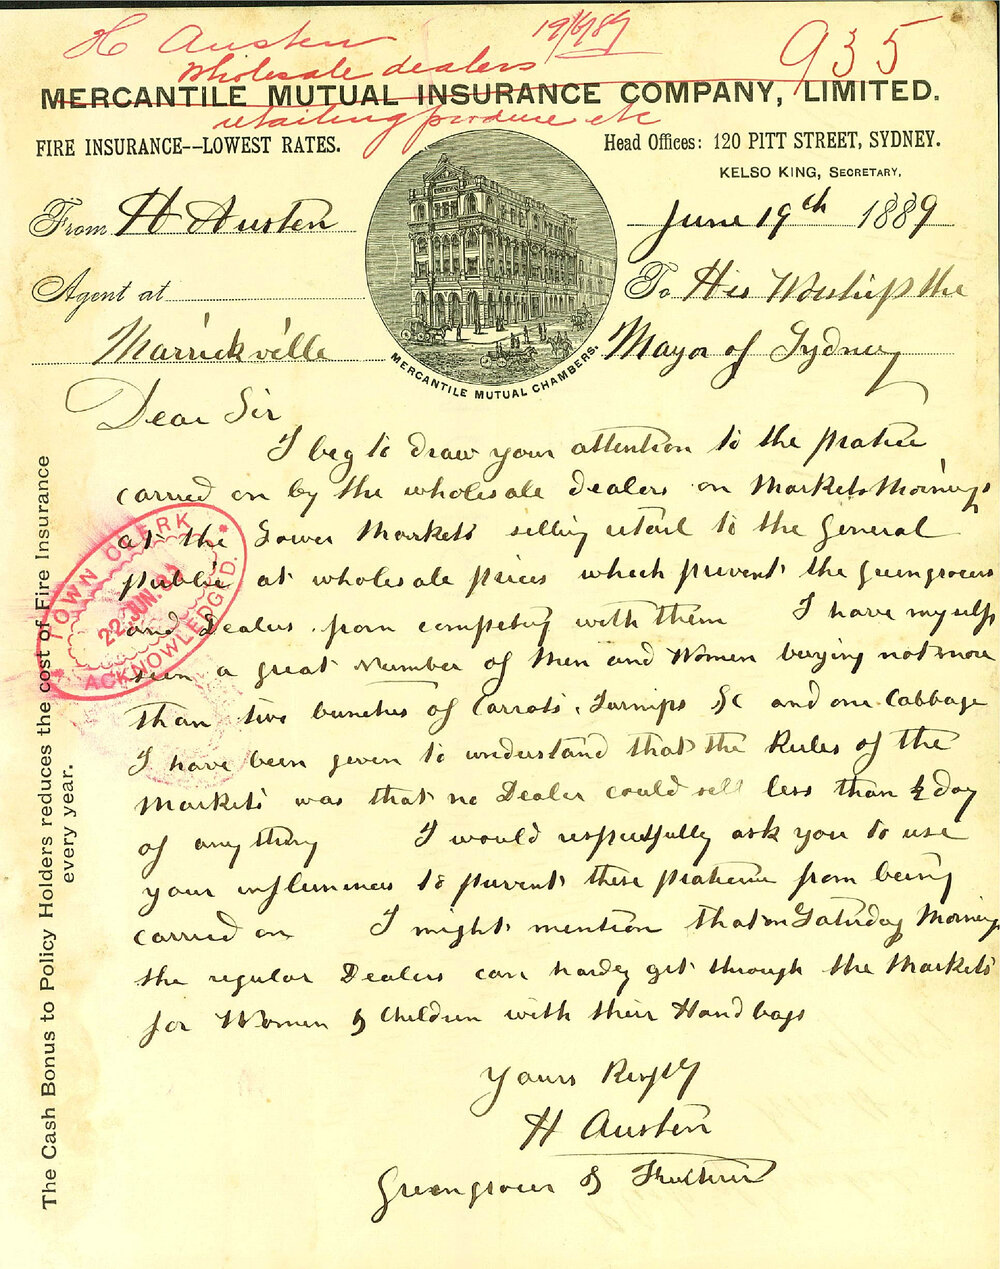 H Austen 19/6/89
935
Wholesale dealers
MERCANTILE MUTUAL INSURANCE COMPANY, LIMITED.
retailing produce etc
FIRE INSURANCE--LOWEST RATES.
Head Offices: 120 PITT STREET, SYDNEY.
KELSO KING, SECRETARY.
From H Austen
June 19th 1889
Agent at
To His Worship the
Marrickville
Mayor of Sydney
MERCANTILE MUTUAL CHAMBERS.
Dear Sir
I beg to draw your attention to the pratice
carried on by the wholesale dealers on Markets Mornings
at the Lower Markets selling retail to the General
public at wholesale prices which prevent the greengrocers
and Dealers from competing with them I have myself
seen a great number of Men and Women buying not more
than two bunches of Carrots, Turnips &c and one Cabbage
I have been given to understand that the Rules of the
Markets was that no Dealer could sell less than ½ doz
of any thing I would respectfully ask you to use
your influences to prevent these pratices from being
carried on I might mention that on Saturday Morning
the regular Dealers can hardey get through the Markets
for Women & Children with their Hand bags
Yours Respty
H Austen
Greengrocer & Fruiterer
TOWN CLERK
22 JUN. 89
ACKNOWLEDGED.
The Cash Bonus to Policy Holders reduces the cost of Fire Insurance
every year.